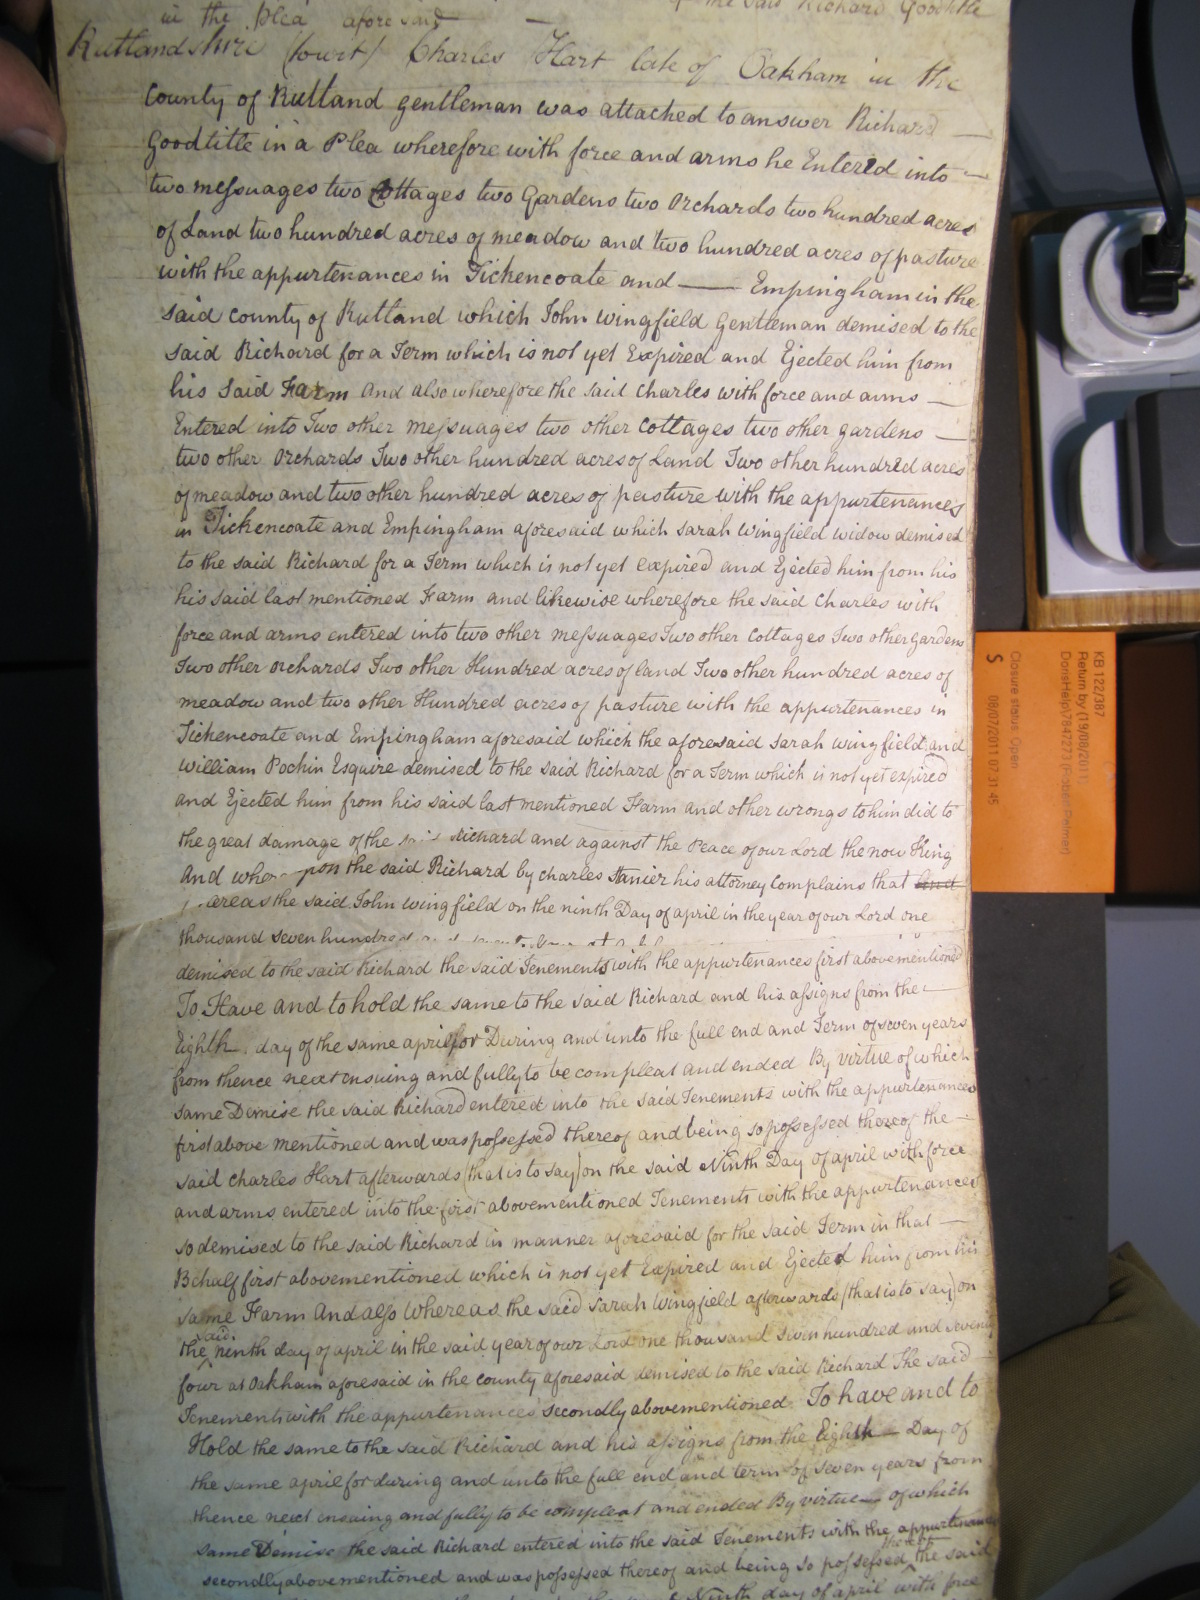 in the Plea aforesaid the said Richard Goodtitle
Rutlandshire (towit) Charles Hart late of Oakham in the
County of Rutland gentleman was attached to answer Richard
Goodtitle in a Plea wherefore with force and arms he Entered into
two messuages two Cottages two Gardens two Orchards two hundred acres
of Land two hundred acres of meadow and two hundred acres of pasture
with the appurtenances in Tickencoate and Empingham in the
said County of Rutland which John Wingfield Gentleman demised to the
said Richard for a Term which is not yet Expired and Ejected him from
his Said Farm And also wherefore the said Charles with force and arms
Entered into Two other messuages two other Cottages two other gardens
two other Orchards Two other hundred acres of Land Two other hundred acres
of meadow and two other hundred acres of pasture with the appurtenances
in Tickencoate and Empingham aforesaid which Sarah Wingfield widow demised
to the said Richard for a Term which is not yet expired and Ejected him from his
his said last mentioned Farm and likewise wherefore the said Charles with
force and arms entered into two other messuages Two other Cottages Two other Gardens
Two other Orchards Two other Hundred acres of land Two other hundred acres of
meadow and two other Hundred acres of pasture with the appurtenances in
Tickencoate and Empingham aforesaid which the aforesaid Sarah Wingfield and
William Pochin Esquire demised to the said Richard for a Term which is not yet expired
and Ejected him from his said last mentioned Farm and other wrongs to him did to
the great damage of the Richard and against the Peace of our Lord the now King
And the said Richard by Charles Stanier his attorney Complains that
the said John Wingfield on the ninth Day of april in the year of our Lord one
thousand seven hundred
demised to the said Richard the said Tenements with the appurtenances first abovementioned
To Have and to hold the same to the said Richard and his assigns from the
Eighth day of the same april for During and unto the full end and Term of seven years
from thence next ensuing and fully to be compleat and ended By virtue of which
same Demise the said Richard entered into the said Tenements with the appurtenances
first above mentioned and was possessed thereof and being so possessed thereof the
said Charles Hart afterwards (that is to say) on the said Ninth Day of april with force
and arms entered into the first abovementioned Tenements with the appurtenances
so demised to the said Richard in manner aforesaid for the said Term in that
Behalf first abovementioned which is not yet Expired and Ejected him from his
same Farm And also Whereas the said Sarah Wingfield afterwards (that is to say) on
the said ninth day of april in the said year of our Lord one thousand seven hundred and seventy
four at Oakham aforesaid in the county aforesaid demised to the said Richard The said
Tenements with the appurtenances secondly abovementioned To have and to
Hold the same to the said Richard and his assigns from the Eighth Day of
the same april for during and unto the full end and term of seven years from
thence next ensuing and fully to be compleat and ended By virtue of which
same Demise the said Richard entered into the said Tenements with the appurtenances
secondly abovementioned and was possessed thereof and being so possessed thereof the said
Ninth day of april with force
KB 122/387
Return by (19/08/2011)
Closure status: Open
S 08/07/2011 07:31:45